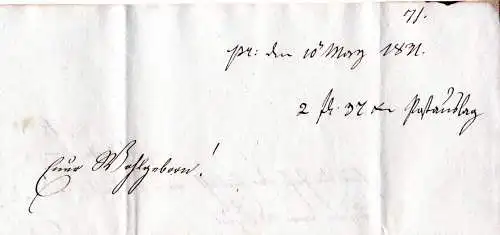 71.
pr: den 10t May 1831.
2 fl. 37 xr Postauslag
Euer Wohlgeborn!